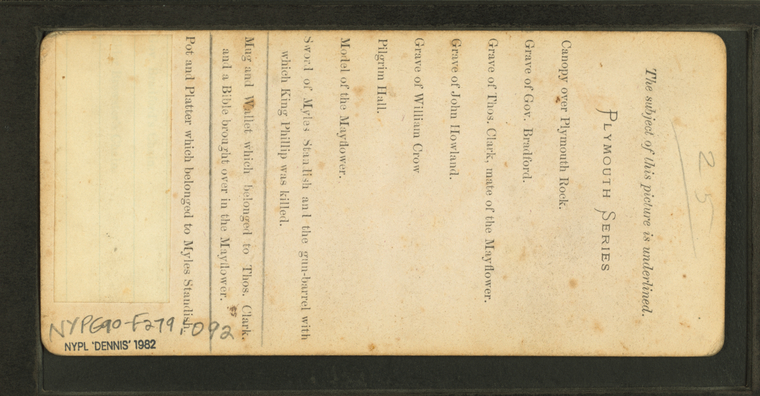 25
The subject of this picture is underlined.
PLYMOUTH SERIES
Canopy over Plymouth Rock.
Grave of Gov. Bradford.
Grave of Thos. Clark, mate of the Mayflower.
Grave of John Howland.
Grave of William Crow
Pilgrim Hall.
Model of the Mayflower.
Sword of Myles Standish and the gun-barrel with
which King Phillip was killed.
Mug and Wallet which belonged to Thos. Clark.
and a Bible brought over in the Mayflower.
Pot and Platter which belonged to Myles Standish.
NYPG90-F279.092
NYPL 'DENNIS' 1982